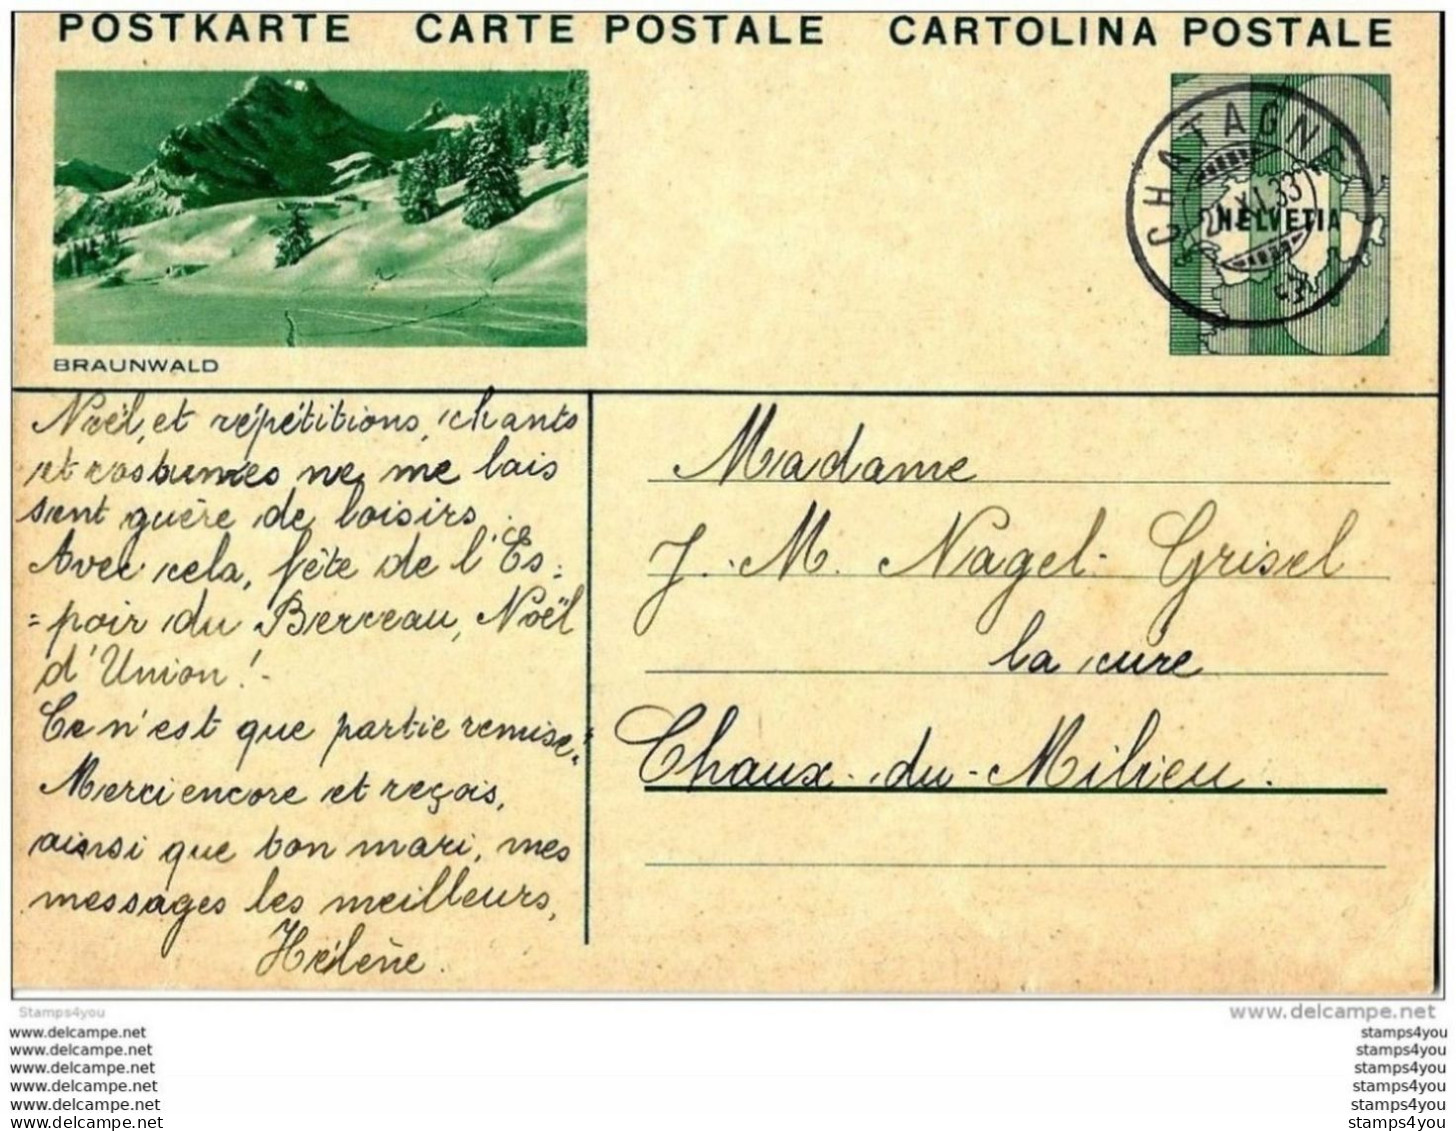 POSTKARTE CARTE POSTALE CARTOLINA POSTALE
CHATAGNE
XI.33
HELVETIA
BRAUNWALD
Noël, et répétitions, chants
et costumes ne me lais
sent guère de loisirs.
Avec cela, fête de l'Es=
=poir du Berceau, Noël
d'Union!-
Ce n'est que partie remise.
Merci encore et reçois,
ainsi que bon mari, mes
messages les meilleurs,
Hélène.
Madame
J.-M. Nagel-Grisel
la cure
Chaux-du-Milieu.
Stamps4you
www.delcampe.net
www.delcampe.net
www.delcampe.net
www.delcampe.net
www.delcampe.net
www.delcampe.net
www.delcampe.net
stamps4you
stamps4you
stamps4you
stamps4you
stamps4you
stamps4you